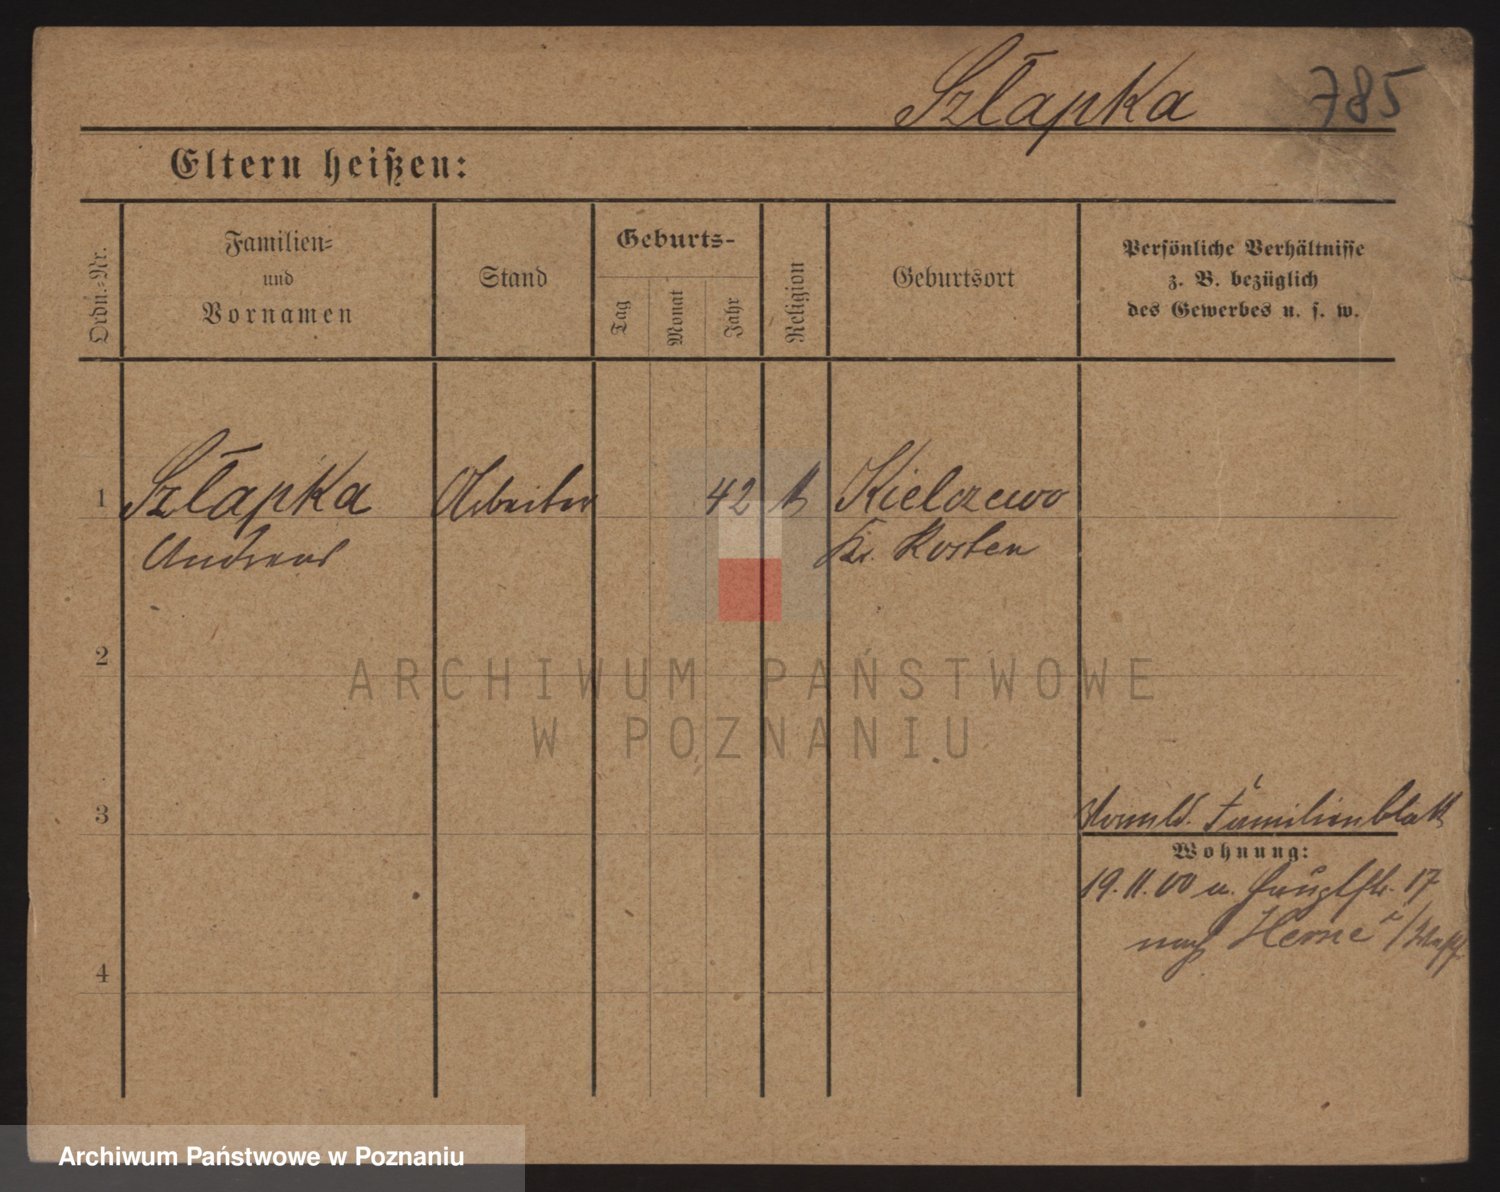 Szłapka 785
Eltern heißen:
Ordn.-Nr.
Familien-
und
Vornamen
Stand
Geburts-
Tag
Monat
Jahr
Religion
Geburtsort
Persönliche Verhältnisse
z. B. bezüglich
des Gewerbes u. s. w.
1 Szłapka Arbeiter 42 Kielczewo
Andreas Kr. Kosten
2
ARCHIWUM PAŃSTWOWE
W POZNANIU
3
Familienblatt
Wohnung:
19.11.00 u. 17
nach Herne
4
Archiwum Państwowe w Poznaniu